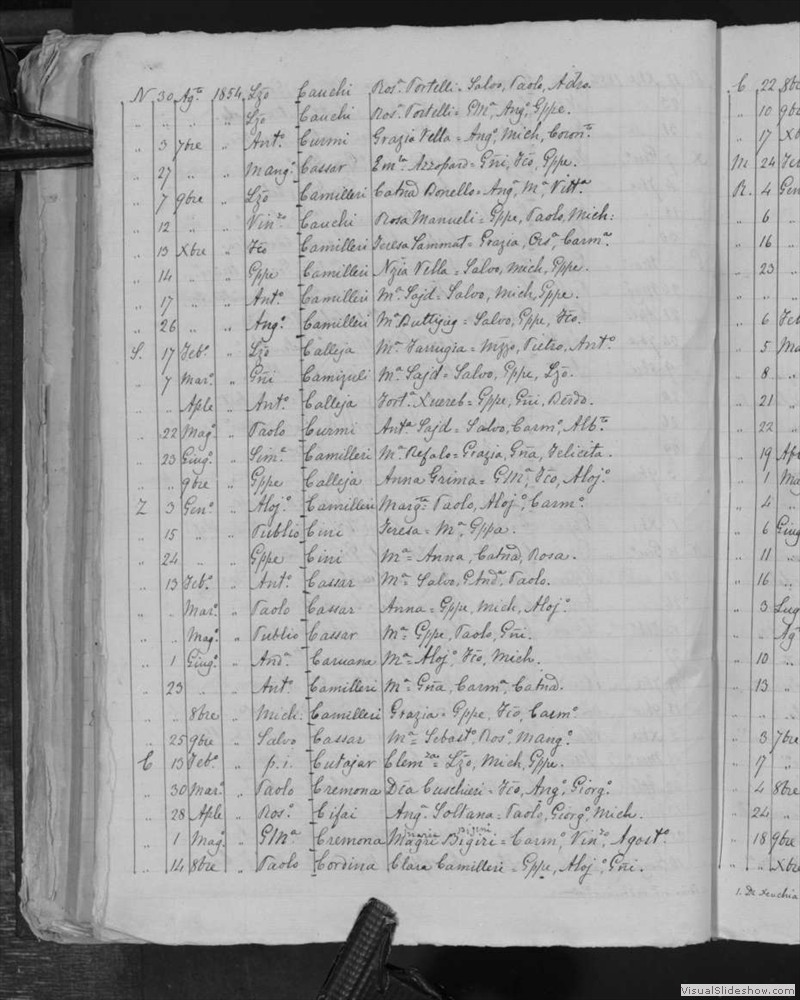 N 30 Agto 1854 Lzo Cauchi Rosa Portelli = Salvo, Paolo, Adeo.
" " " " Lzo Cauchi Rosa Portelli = GMa, Ango, Gppe.
" 3 7bre " Anto Curmi Grazia Vella = Ango, Mich,
" 27 " " Mango Cassar Azzopardi = Gñi, Fco, Gppe.
" 7 9bre " Lzo Camilleri Catnã Bonello = Ango, Ma, Vitta
" 12 " " Vinzo Cauchi Rosa Manueli = Gppe, Paolo, Mich:
" 13 Xbre " Fco Camilleri Teresa Sammut = Grazia, Carma.
" 14 " " Gppe Camilleri Nzia Vella = Salvo, Mich, Gppe.
" 17 " " Anto Camilleri Ma Sajd = Salvo, Mich, Gppe.
" 26 " " Ango Camilleri Ma Buttigieg = Salvo, Gppe, Fco.
S. 17 Febo " Lzo Calleja Ma Farrugia = Pietro, Anto
" 7 Maro " Gñi Camizuli Ma Sajd = Salvo, Gppe, Lzo.
" " Aple " Anto Calleja Forta Xuereb = Gppe, Gñi, Berdo.
" 22 Mago " Paolo Curmi Anta Sajd = Salvo, Carmo, Albto.
" 23 Giugo " Sima Camilleri Ma Refalo = Grazia, Gña, Felicita.
" " 9bre " Gppe Calleja Anna Grima = GMa, Fco, Alojo
Z 3 Geno " Alojo Camilleri Margta Paolo, Alojo, Carmo
" 15 " " Publio Cini Teresa = Ma, Gppa.
" 24 " " Gppe Cini Ma = Anna, Catnã, Rosa.
" 13 Febo " Anto Cassar Ma = Salvo, Paolo.
" " Maro " Paolo Cassar Anna = Gppe, Mich, Alojo
" " Mago " Publio Cassar Ma = Gppe, Paolo, Gñi.
" 1 Giugo " Anda Caruana Ma = Alojo, Fco, Mich.
" 23 " " Anto Camilleri Ma = Gña, Carma, Catnã.
" " 8bre " Mich: Camilleri Grazia = Gppe, Fco, Carmo
" 25 9bre " Salvo Cassar Ma = Sebasto, Roso, Mango
C 13 Febo " p.i. Cutajar Clemza = Lzo, Mich, Gppe.
" 30 Maro " Paolo Cremona Dca Cuschieri = Fco, Ango, Giorgo
" 28 Aple " Roso Cifai Anga Soltana = Paolo, Giorgo, Mich.
" 1 Mago " GMa Cremona Magre Bigiri = Carmo, Vinzo, Agosto
" 14 8bre " Paolo Cordina Clara Camilleri = Gppe, Alojo, Gñi.
C 22 8bre
" 10 9bre
" 17 Xb
M 24 Feb
R. 4 Gen
" 6 "
" 16 "
" 23 "
" " "
" 6 Feb
" 5 Ma
" 8 "
" 21 "
" 22 "
" 19 Ap
" 1 Ma
" 4 "
" 6 Giug
" 11 "
" 16 "
" 3 Lug
" " Ag
" 10 "
" 13 "
" 3 7bre
" 17 "
" 4 8bre
" 24 "
" 18 9bre
" " Xbre
VisualSlideshow.com